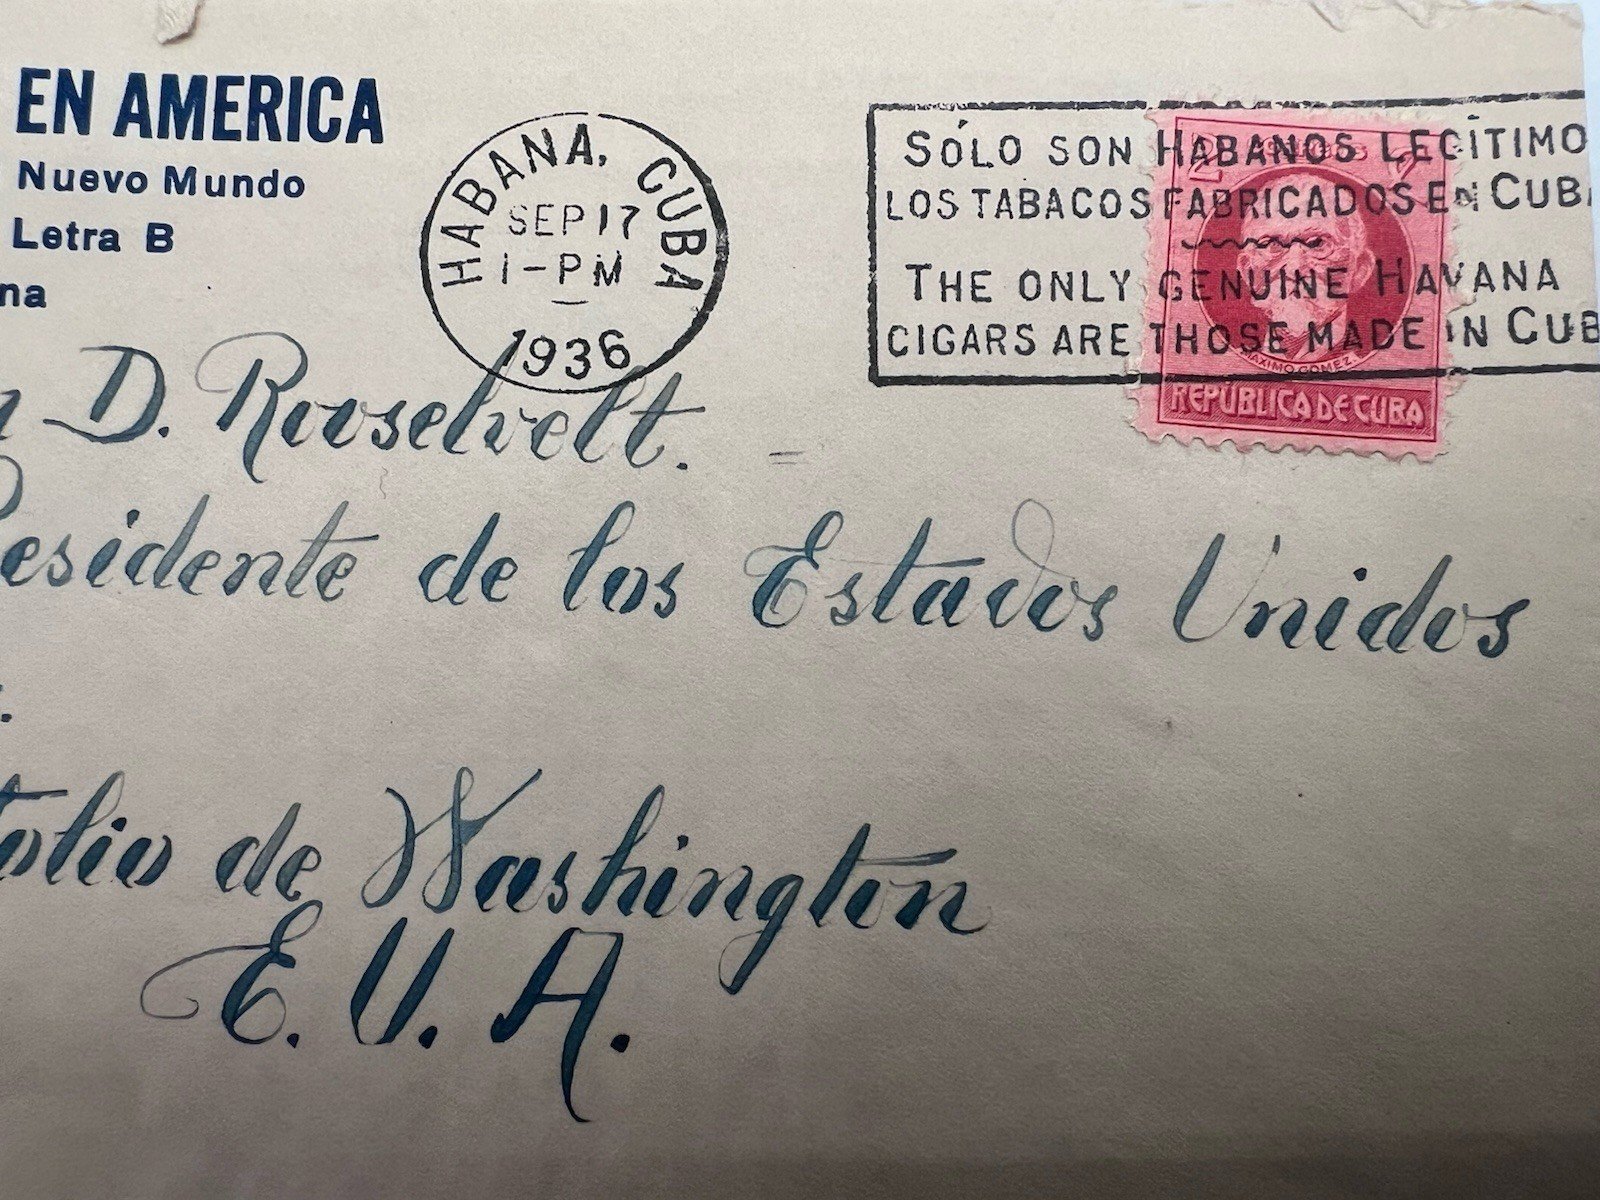 EN AMERICA
Nuevo Mundo
Letra B
na
HABANA, CUBA
SEP 17
1-PM
1936
SÓLO SON HABANOS LEGÍTIMO
LOS TABACOS FABRICADOS EN CUBA
THE ONLY GENUINE HAVANA
CIGARS ARE THOSE MADE IN CUB
2 2
MAXIMO GOMEZ
REPÚBLICA DE CUBA
D. Rooselvelt.
esidente de los Estados Unidos
tolio de Washington
E. U. A.